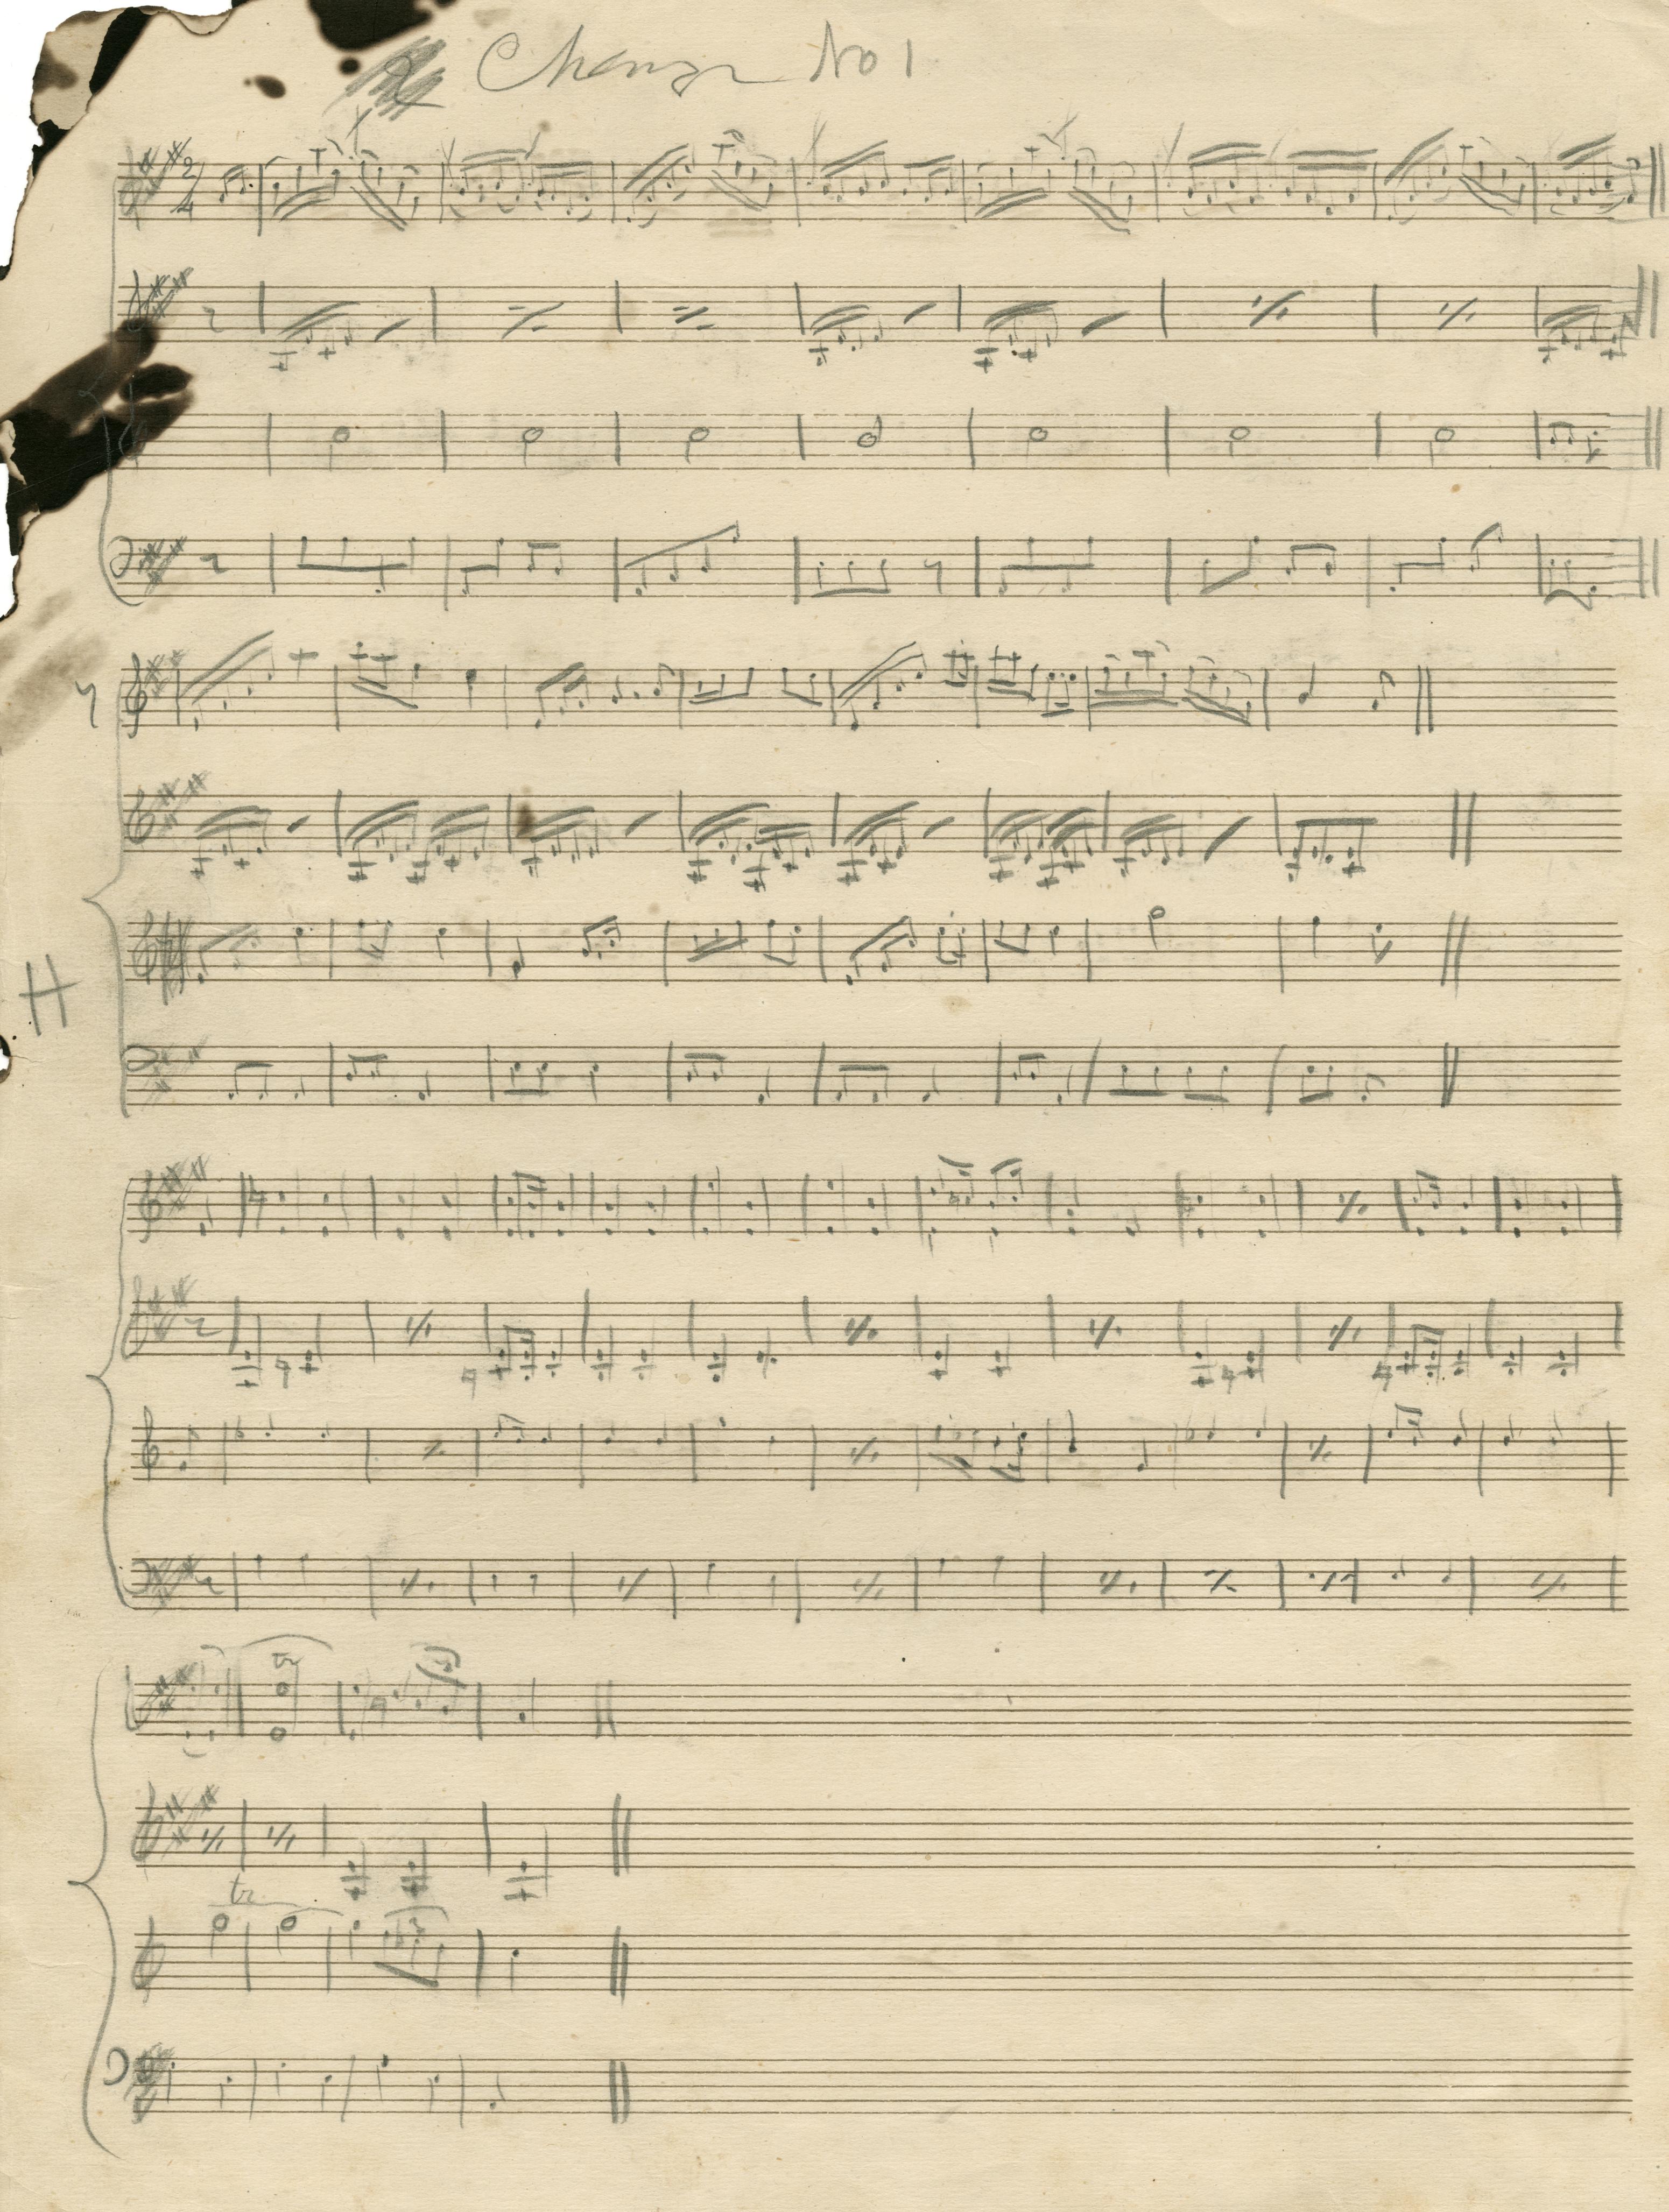 Change No 1
2/4
H
tr
tr